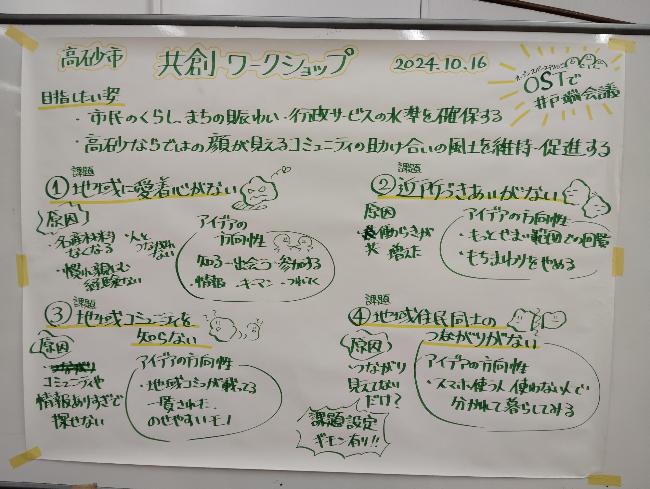 高砂市 共創ワークショップ 2024.10.16
OSTで
井戸端会議
目指したい姿
・市民のくらし、まちの賑わい・行政サービスの水準を確保する
・高砂ならではの顔が見えるコミュニティの助け合いの風土を維持・促進する
課題
①地域に愛着心がない
原因
なくなる
・人と
つながれない
アイデアの
方向性
知る→出会う→参加する
・情報・キーマン・つれてく
課題
②近所づきあいがない
原因
・共働らきが
増えた
アイデアの方向性
・もっとせまい範囲での回覧
・もちまわりをやめる
課題
③地域コミュニティを
知らない
原因
コミュニティや
情報ありすぎで
探せない
アイデアの方向性
・地域コミュが載ってる
一覧された
のせやすいモノ
課題
④地域住民同士の
つながりがない
原因
・つながり
見えてない
だけ?
アイデアの方向性
・スマホ使う人使わない人で
分かれて暮らしてみる
課題設定
ギモン有り!!